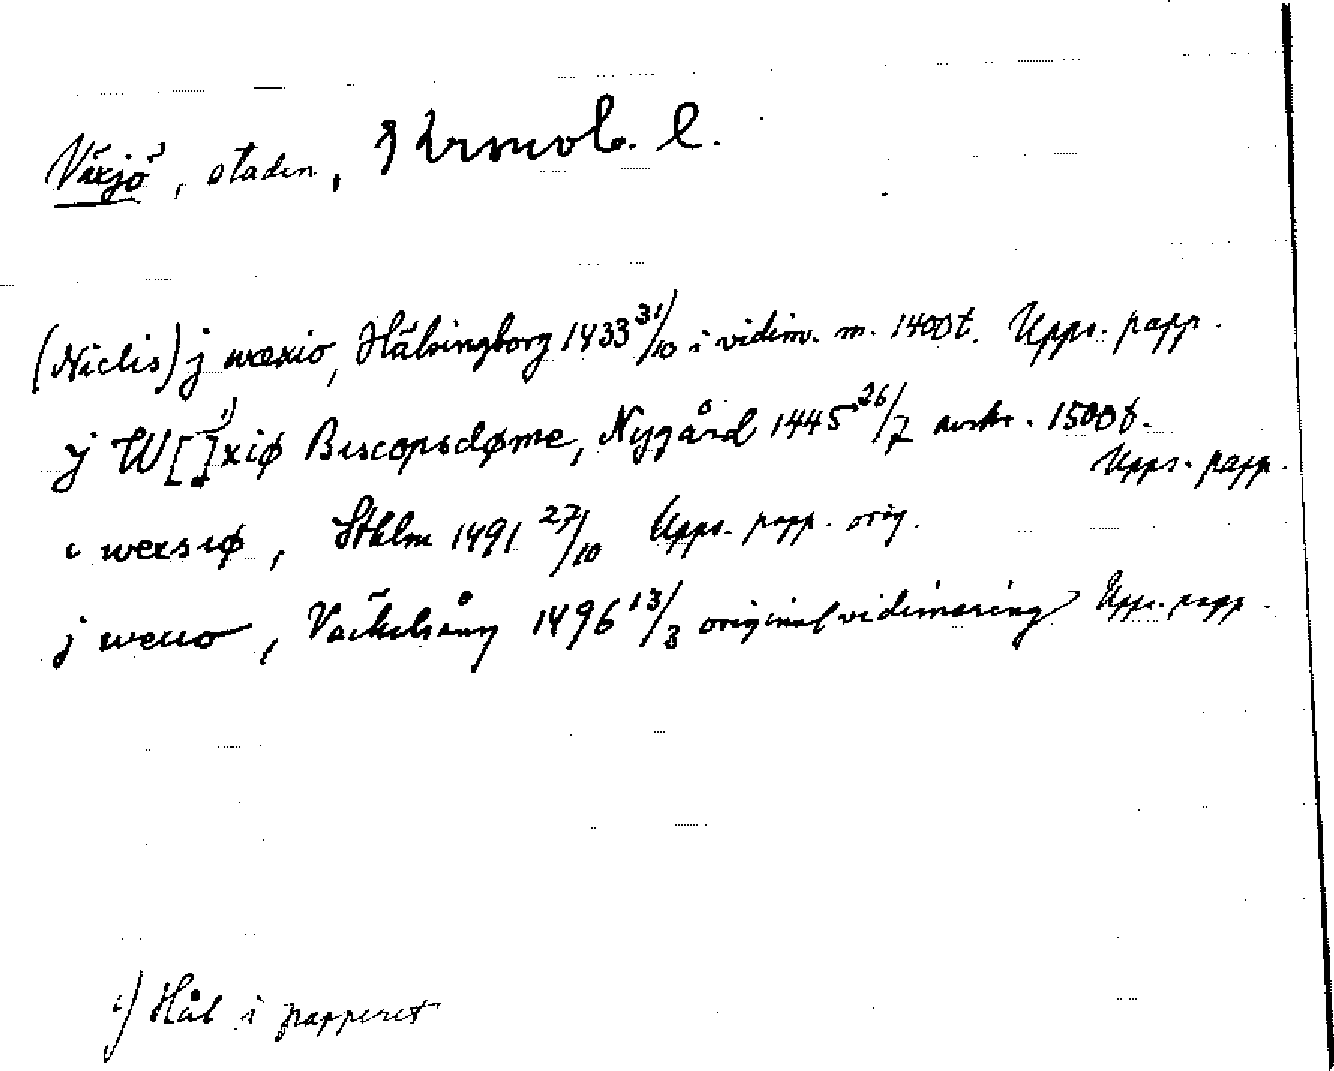 Växjö, staden, Kronob. l.
(Niclis) j wexio, Hälsingborg 1433 31/10 i vidim. m. 1400t. Upps. papp.
j W[]¹)xiø Biscopsdøme, Nygård 1445 26/7 avskr. 1500b.
Upps. papp.
i wexsiø, Sthlm 1491 27/10 Upps. papp. orig.
j wexio, Väckelsång 1496 13/3 originalvidimering Upps. papp.
¹) Hål i papperet